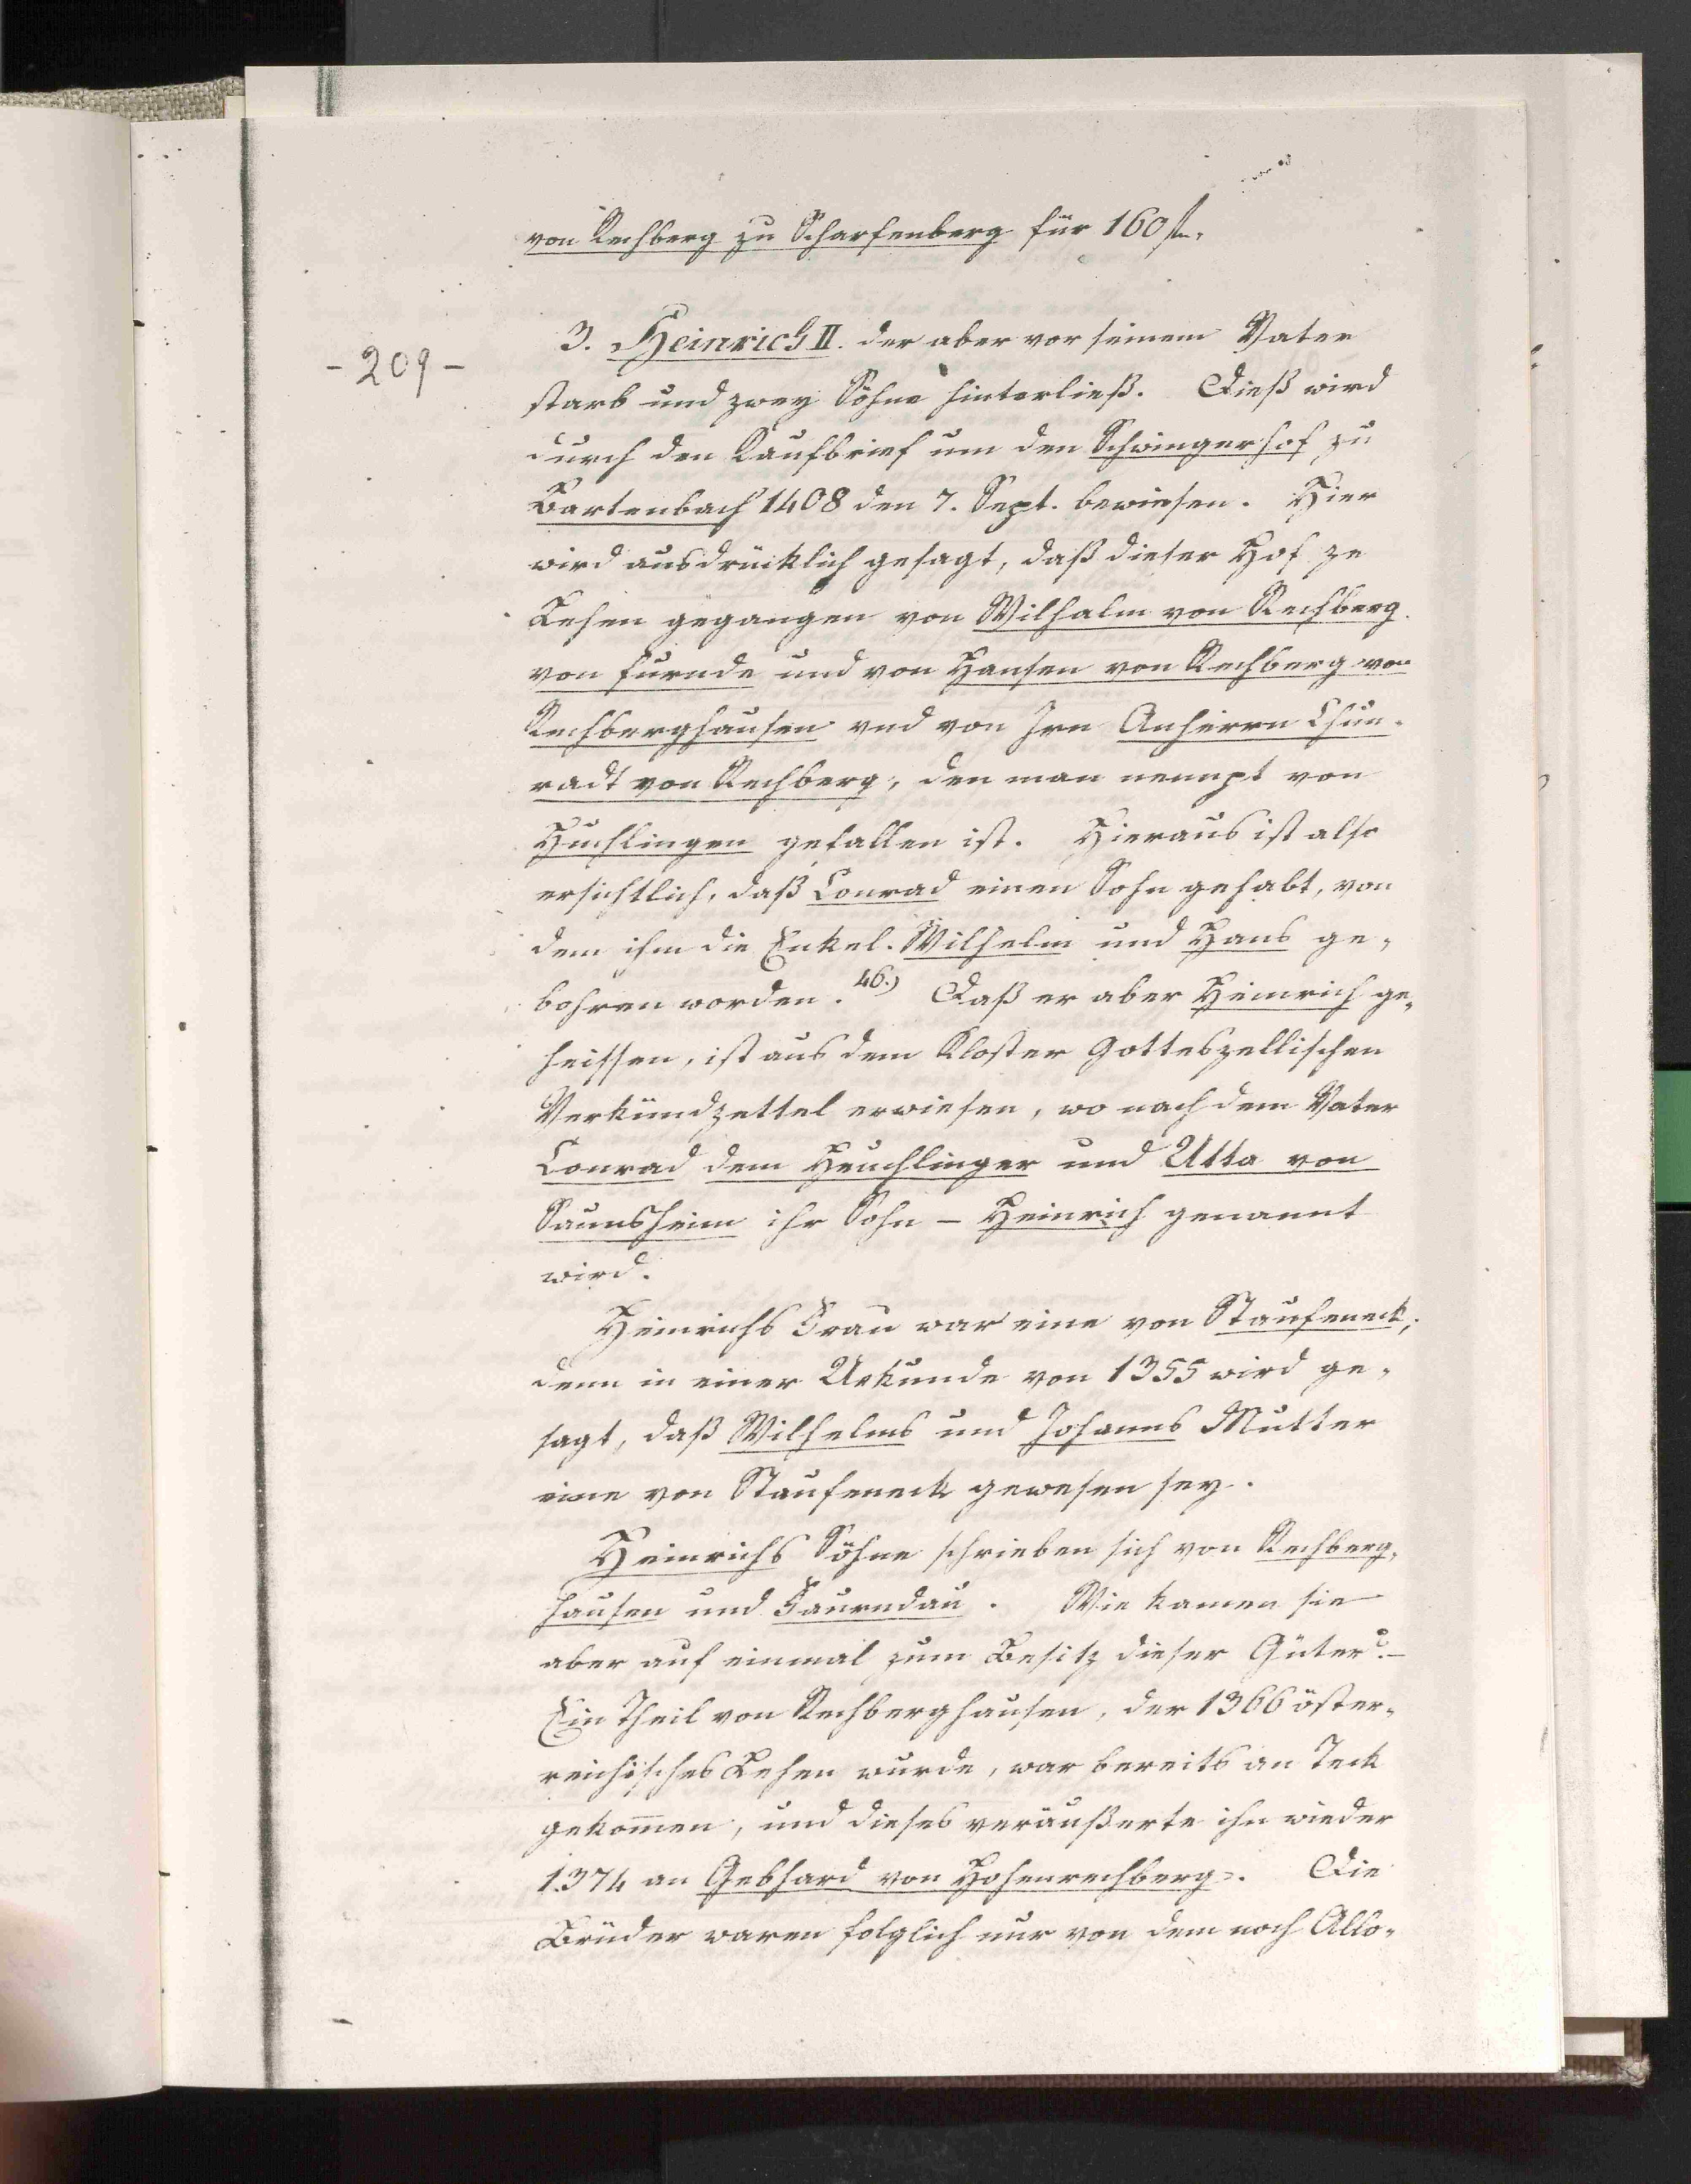 von Rechberg zu Scharfenberg für 160 fl.
- 209 -
3. Heinrich II. der aber vor seinem Vater
starb und zwey Söhne hinterließ. Dieß wird
durch den Kaufbrief um den Schwingerhof zu
Bartenbach 1408 den 7. Sept. bewiesen. Hier
wird ausdrücklich gesagt, daß dieser Hof ze
Lehen gegangen von Wilhalm von Rechberg
von furnde und von Hansen von Rechberg von
Rechberghausen vnd von Irn Anherrn Chun-
radt von Rechberg, den man nennpt von
Huchlingen gefallen ist. Hieraus ist also
ersichtlich, daß Conrad einen Sohn gehabt, von
dem ihm die Enkel Wilhelm und Hans ge-
bohren worden. 46.) Daß er aber Heinrich ge-
heissen, ist aus dem Kloster Gotteszellischen
Verkündzettel erwiesen, wo nach dem Vater
Conrad dem Heuchlinger und Utta von
Saunsheim ihr Sohn - Heinrich genannt
wird.
Heinrichs Frau war eine von Staufeneck;
denn in einer Urkunde von 1355 wird ge-
sagt, daß Wilhelms und Johanns Mutter
eine von Staufeneck gewesen sey.
Heinrichs Söhne schrieben sich von Rechberg-
hausen und Faurndau. Wie kamen sie
aber auf einmal zum Besitz dieser Güter? -
Ein Theil von Rechberghausen, der 1366 öster-
reichisches Lehen wurde, war bereits an Teck
gekom̄en, und dieses veräußerte ihn wieder
1374 an Gebhard von Hohenrechberg. Die
Brüder waren folglich nur von dem noch Allo-